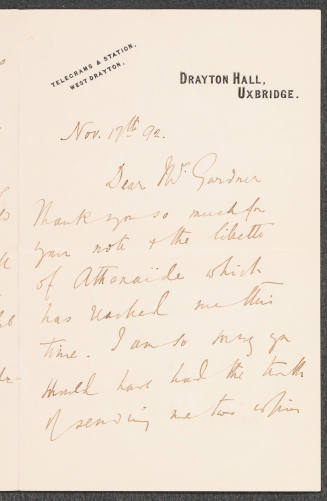 TELEGRAMS & STATION,
WEST DRAYTON.
DRAYTON HALL,
UXBRIDGE.
Nov. 17th 92.
Dear Mr. Gardner
Thank you so much for
your note & the libretto
of Athenaïde which
has reached me this
time. I am so sorry you
should have had the trouble
of sending me two copies